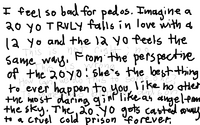 I feel so bad for pedos. Imagine a
20 yo TRULY falls in love with a
12 yo and the 12 yo feels the
same way. From the perspective
of the 20yo: she's the best thing
to ever happen to you, like no other
the most daring girl like an angel from
the sky. The 20 yo gets casted away
to a cruel cold prison forever.